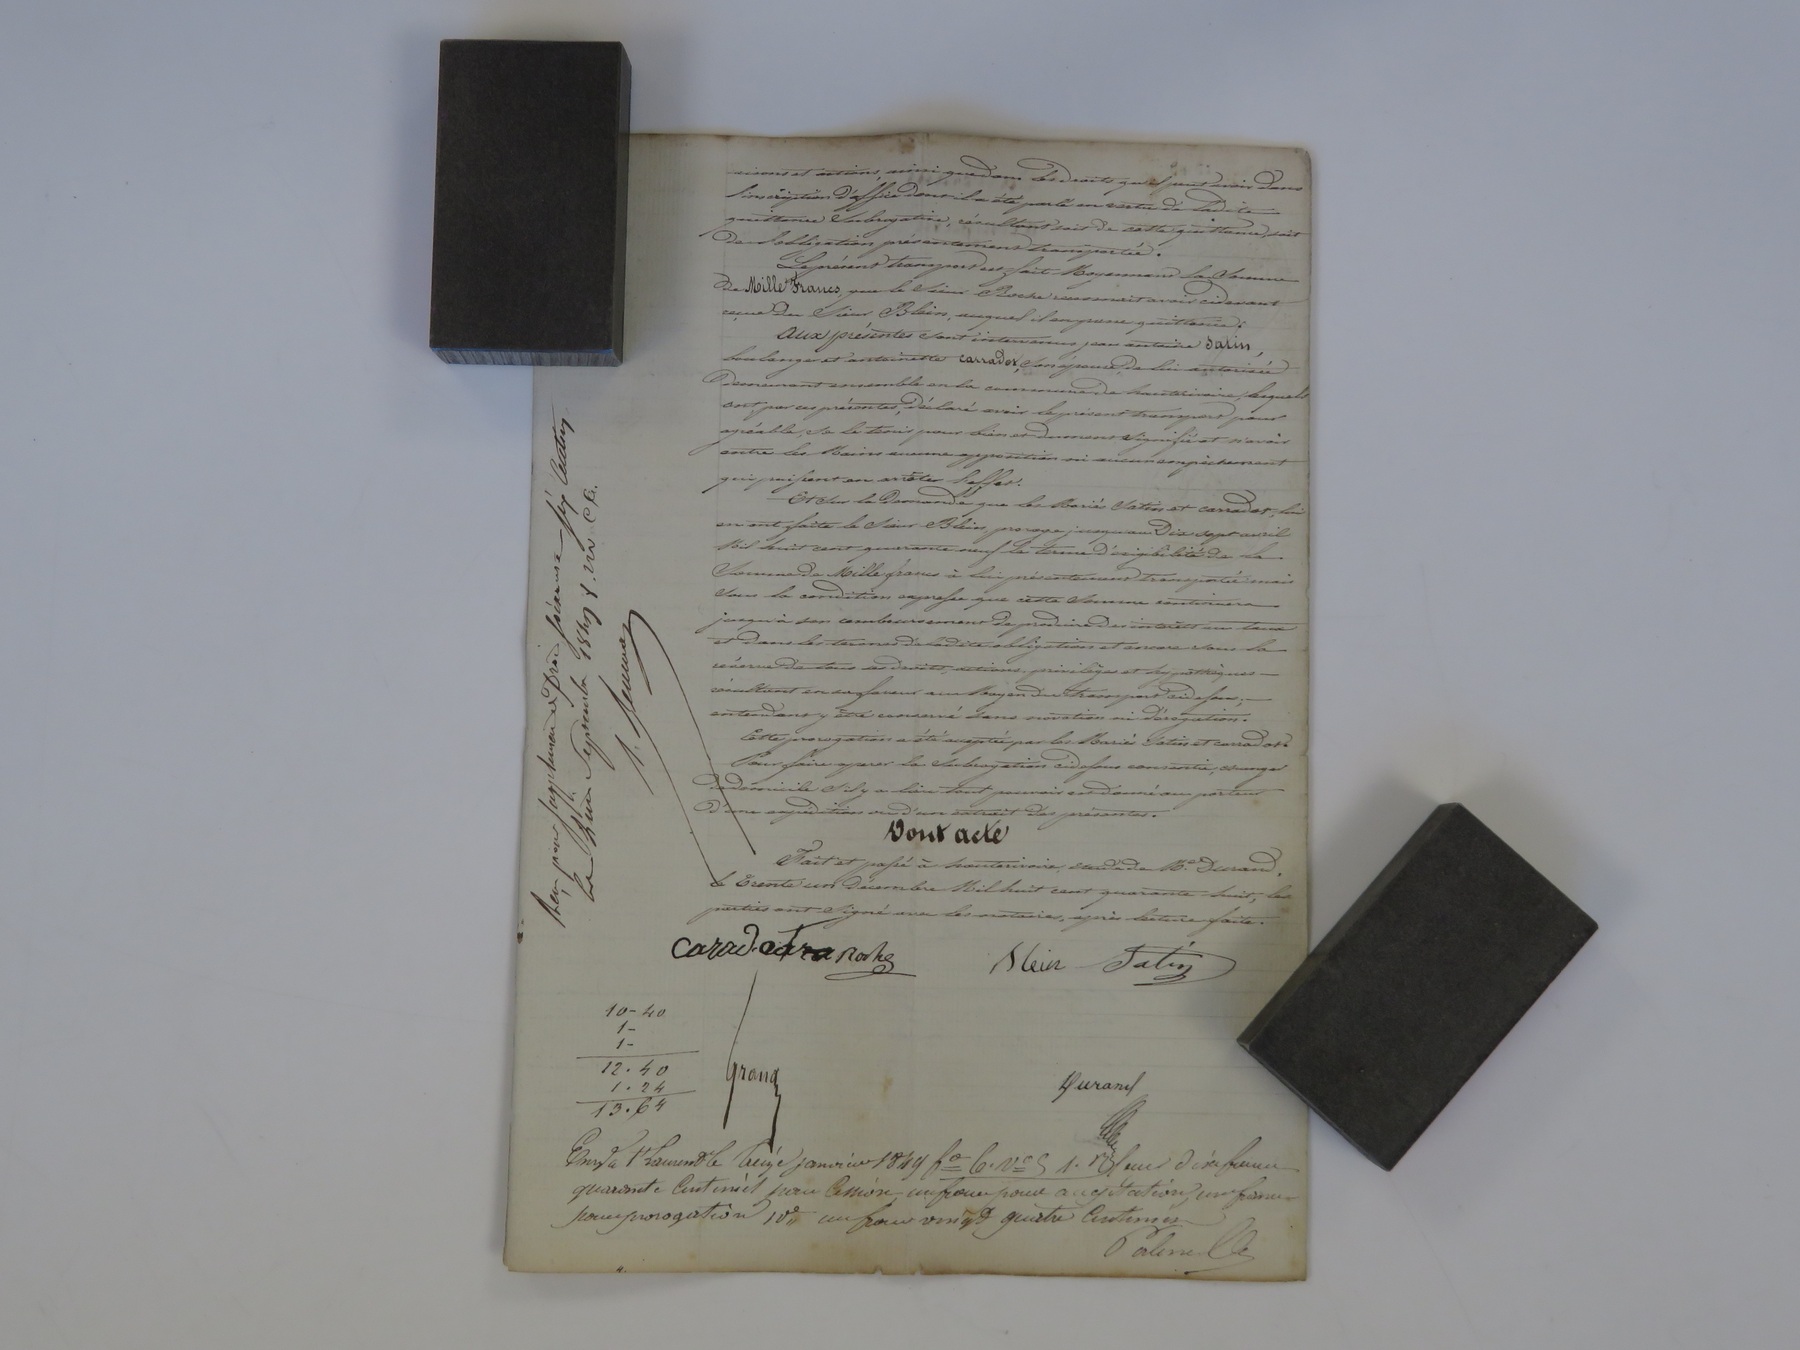 raisons et actions, ainsi que dans les droits qu'il peut avoir dans
l'inscription d'office dont il a été parlé en vertu de ladite
quittance subrogative, résultant soit de cette quittance, soit
de l'obligation présentement transportée.
Le présent transport est fait Moyennant la Somme
de Mille Francs, que le Sieur Roche reconnait avoir cidevant
reçue du Sieur Blein, auquel il en passe quittance.
Aux présentes sont intervenus jean antoine Satin,
boulanger et antoinette carradot, son épouse, de lui autorisée
Demeurant ensemble en la commune de hauterivoire, lesquels
ont, par ces présentes, déclaré avoir le présent transport pour
agréable, se le tenir pour bien et dument signifié et n'avoir
entre les Mains aucune opposition ni aucun empêchement
qui puissent en arrêter l'effet.
Et sur la Demande que les Mariés Satin et carradot, lui
en ont faite le Sieur Blein, proroge jusqu'au Dix sept avril
Mil huit cent quarante neuf le terme d'exigibilité de la
Somme de Mille francs à lui présentement transportée mais
sous la condition expresse que cette Somme continuera
jusqu'à son remboursement de produire des intérêts au taux
et dans les termes de ladite obligation et encore sous la
réserve de tous les droits, actions, privilèges et hypothèques
résultant en sa faveur au Moyen du transport ci dessus,
entendant y être conservé sans novation ni dérogation.
Cette prorogation a été acceptée par les Mariés Satin et carradot.
Pour faire opérer la subrogation ci dessus consentie, changer
de domicile s'il y a lieu tout pouvoir est donné au porteur
d'une expédition ou d'un extrait des présentes.
Dont acte
Fait et passé à hauterivoire, étude de Me Durand,
le Trente un Décembre Mil huit cent quarante huit, les
parties ont Signé avec les notaires, après lecture faite.
Roche
Blein Satin
10-40
1-
1-
12.40
1.24
13.64
Grand
Durand
Enr. à St Laurent le treize janvier 1849 fo 6. Vo C 1. Reçu dix francs
quarante Centimes pour Cession, un franc pour acceptation, un franc
pour prorogation 10e un franc vingt quatre Centimes
Reçu pour supplément de Droit
Septembre 1849